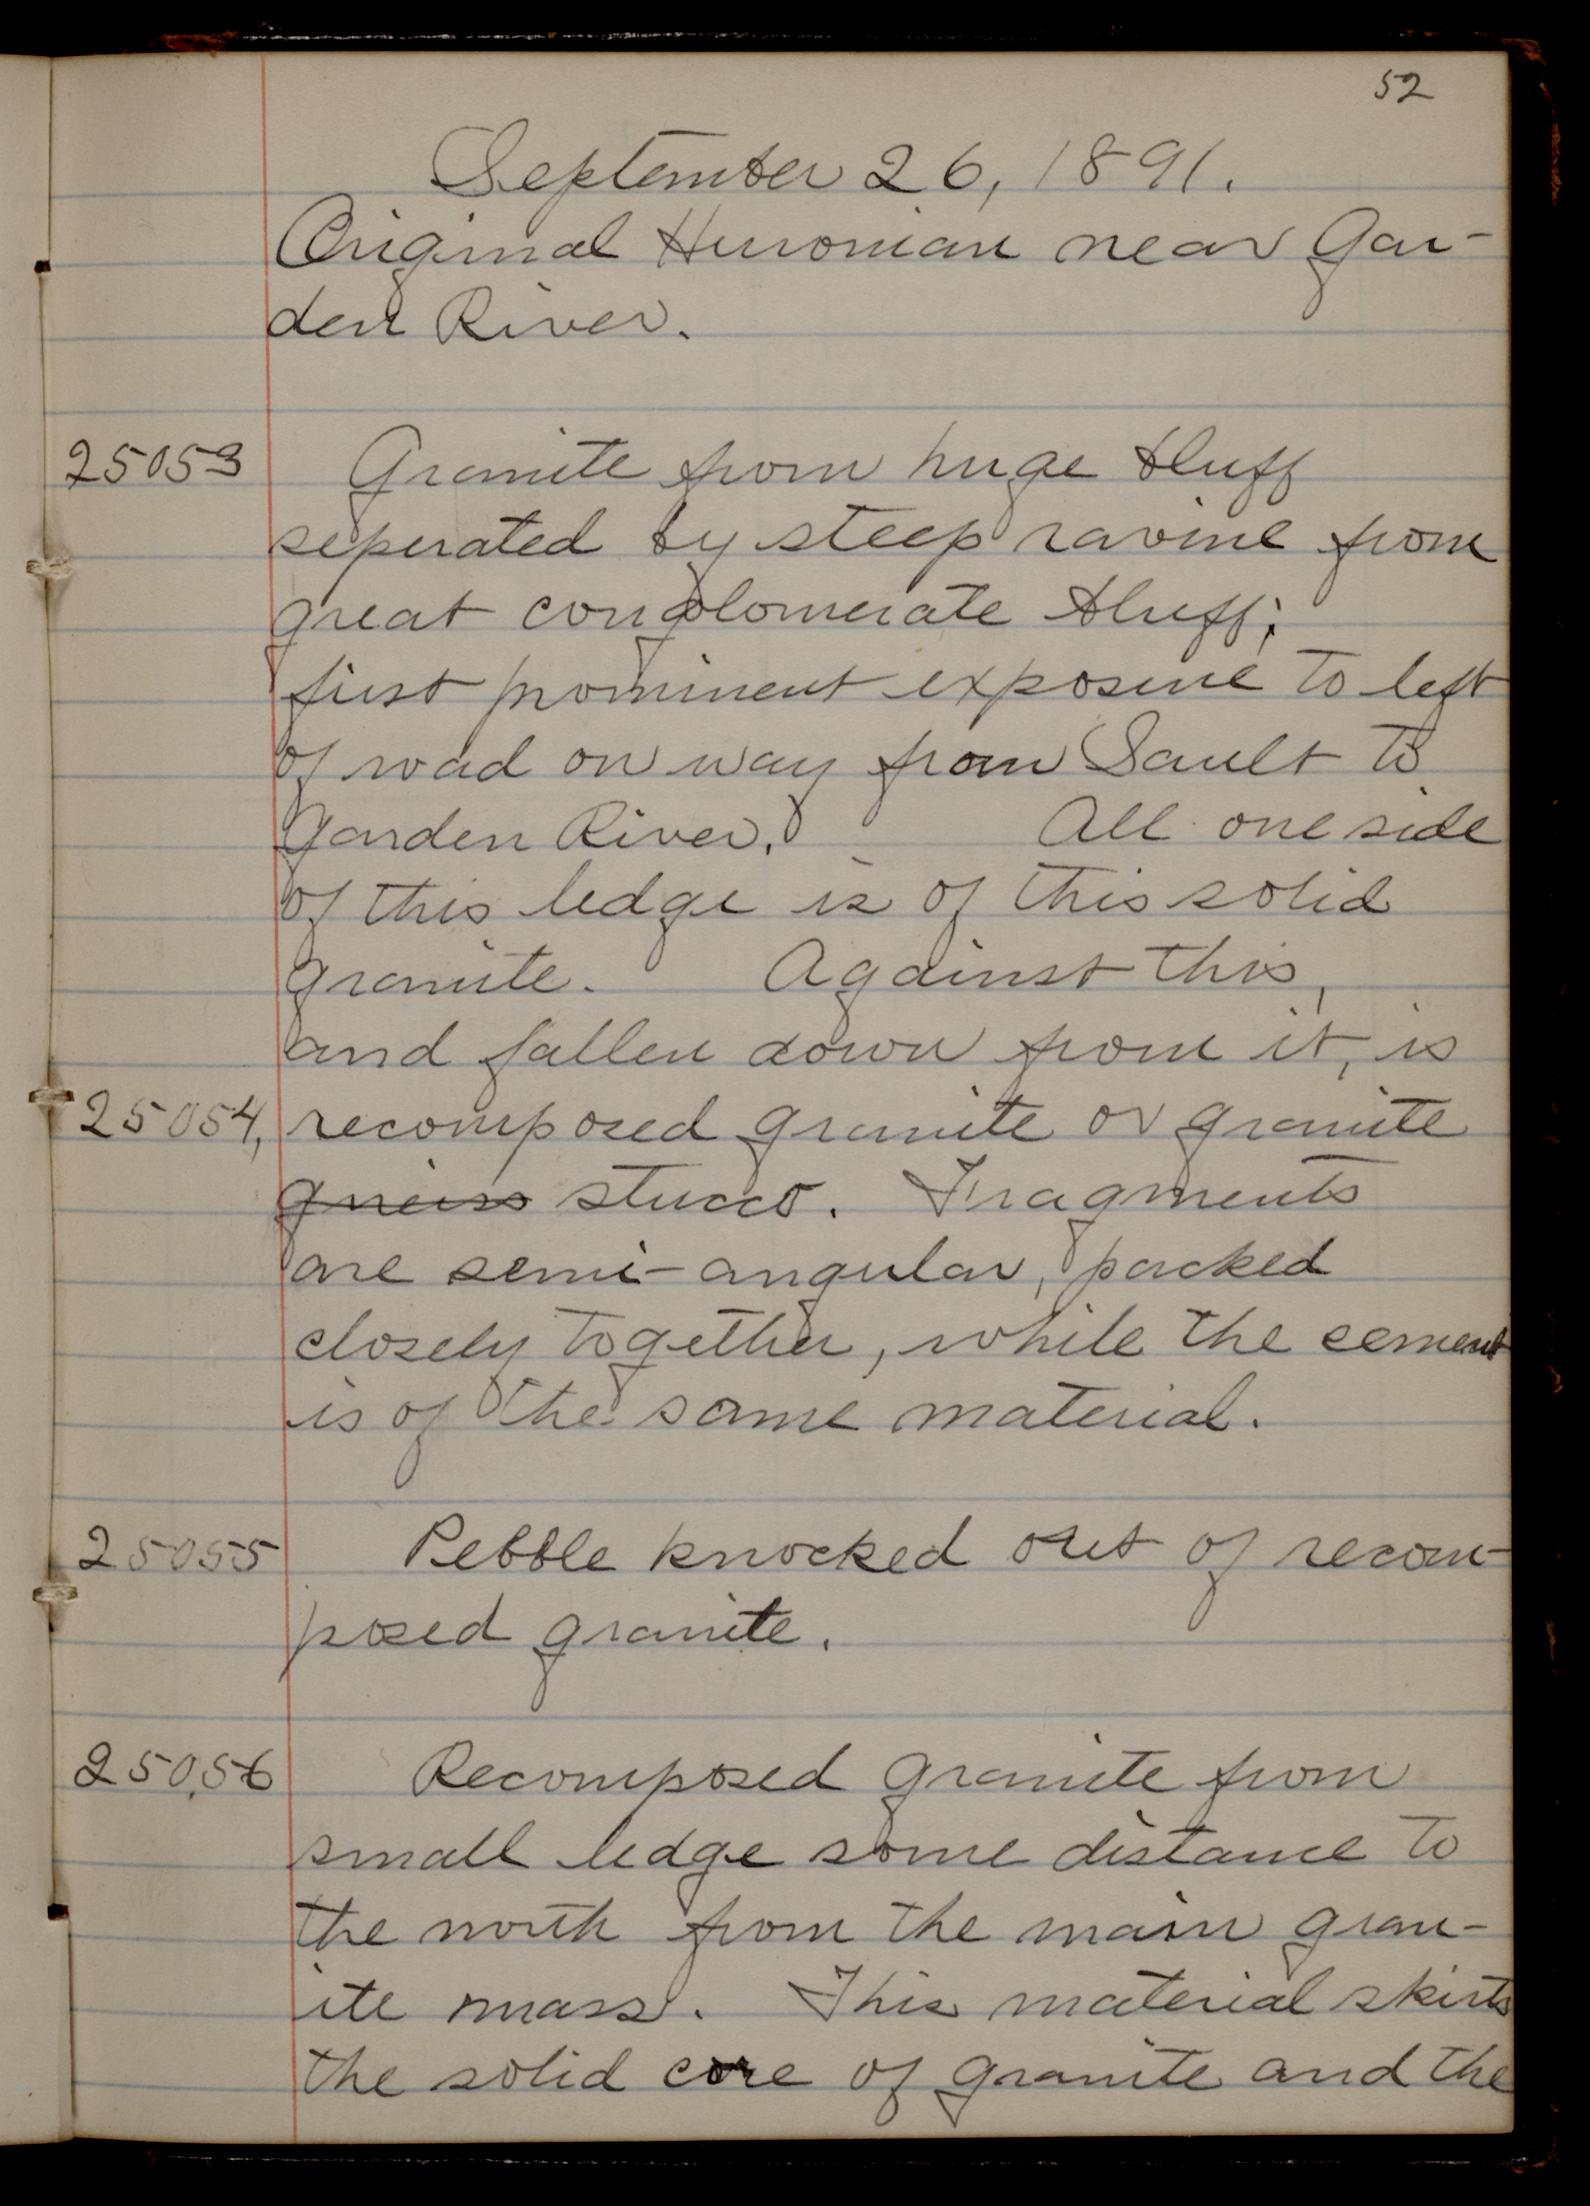 52
September 26, 1891.
Original Huronian near Gar-
den River.
25053 Granite from huge bluff
seperated by steep ravine from
great conglomerate bluff;
first prominent exposure to left
of road on way from Sault to
Garden River. All one side
of this ledge is of this solid
granite. Against this,
and fallen down from it, is
25054, recomposed granite or granite
gneiss stucco. Fragments
are semi-angular, packed
closely together, while the cement
is of the same material.
25055 Pebble knocked out of recom-
posed granite.
25056 Recomposed granite from
small ledge some distance to
the north from the main gran-
ite mass. This material skirts
the solid core of granite and the